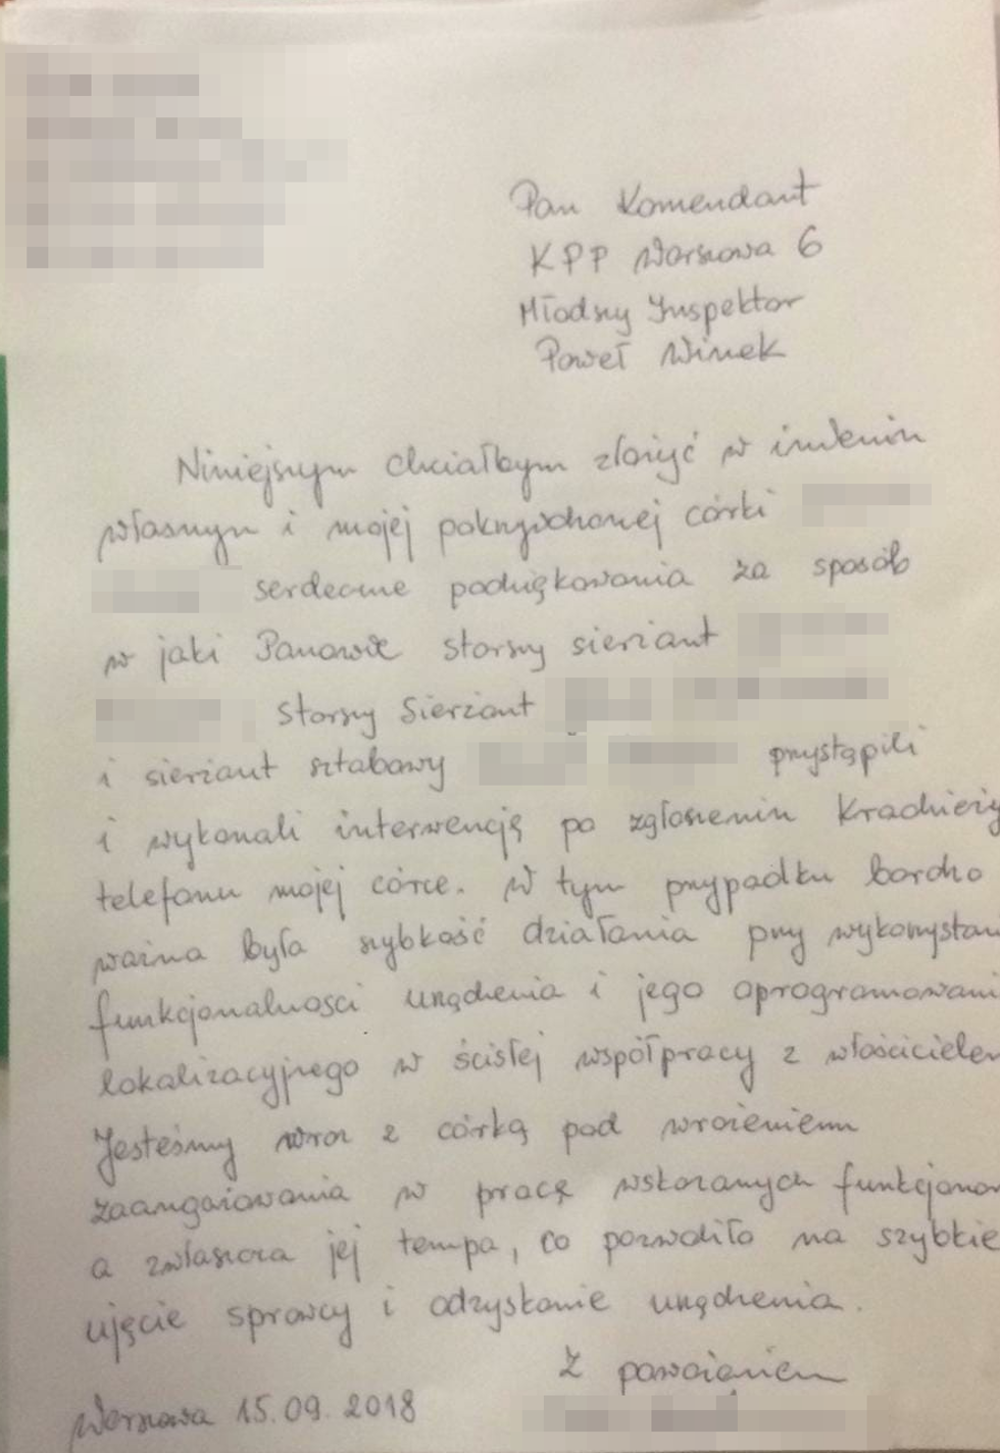 Pan Komendant
KPP Warszawa 6
Młodszy Inspektor
Paweł Winek
Niniejszym chciałbym złożyć w imieniu
własnym i mojej pokrzywdzonej córki
serdeczne podziękowania za sposób
w jaki Panowie starszy sierżant
, starszy sierżant
i sierżant sztabowy przystąpili
i wykonali interwencję po zgłoszeniu kradzieży
telefonu mojej córce. W tym przypadku bardzo
ważna była szybkość działania przy wykorzystan
funkcjonalności urządzenia i jego oprogramowani
lokalizacyjnego w ścisłej współpracy z właściciele
Jesteśmy wraz z córką pod wrażeniem
zaangażowania w pracę wskazanych funkcjonar
a zwłaszcza jej tempa, co pozwoliło na szybkie
ujęcie sprawcy i odzyskanie urządzenia.
Z poważaniem
Warszawa 15.09.2018